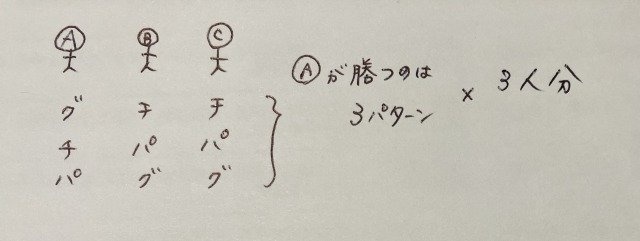 A B C
グ チ チ
チ パ パ
パ グ グ
Aが勝つのは
3パターン
× 3人分